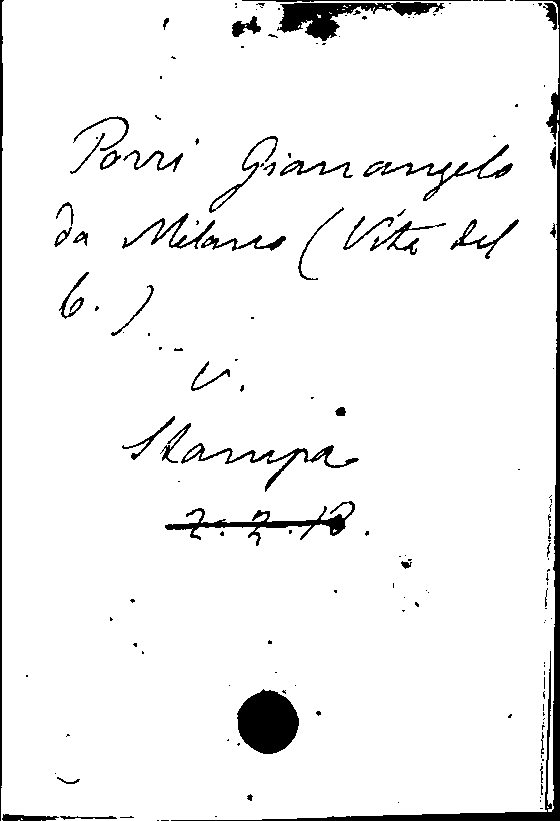 Porri Gianangelo
da Milano (Vita del
b.)
v.
Stampa
2.2.18.